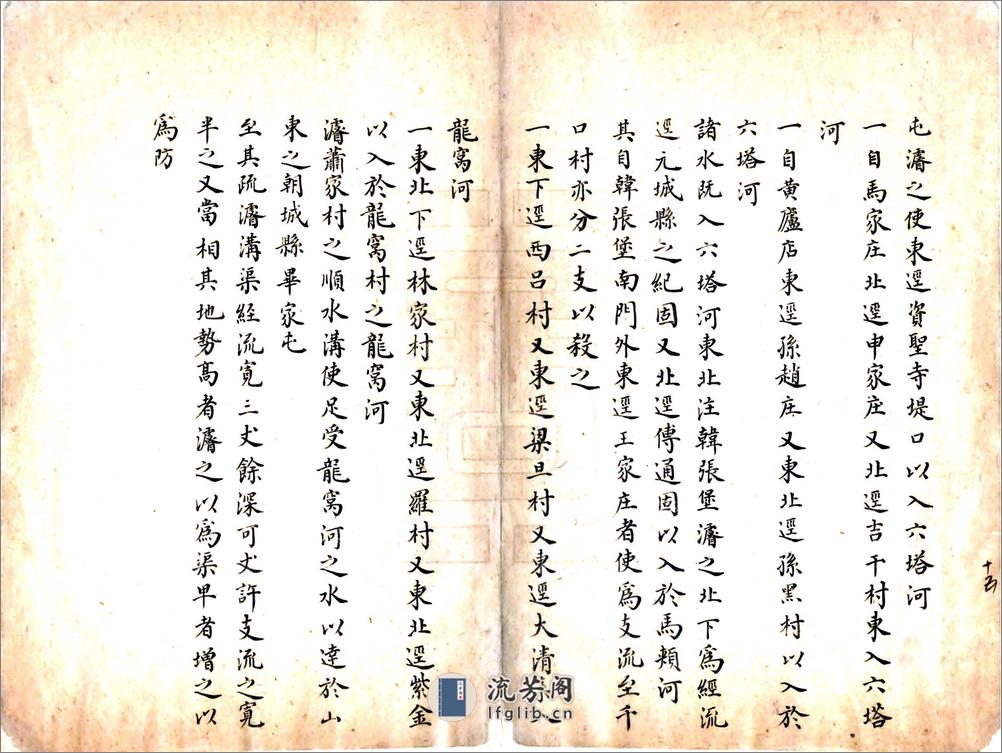 屯濬之使東逕資聖寺堤口以入六塔河
一自馬家庄北逕申家庄又北逕吉干村東入六塔
河
一自黃廬店東逕孫趙庄又東北逕孫黑村以入於
六塔河
諸水既入六塔河東北注韓張堡濬之北下爲經流
逕元城縣之紀固又北逕傅通固以入於馬頰河
其自韓張堡南門外東逕王家庄者使爲支流至千
口村亦分二支以殺之
一東下逕西呂村又東逕梁旦村又東逕大清
龍窩河
一東北下逕林家村又東北逕羅村又東北逕紫金
以入於龍窩村之龍窩河
濬蕭家村之順水溝使足受龍窩河之水以達於山
東之朝城縣畢家屯
至其疏濬溝渠經流寬三丈餘深可丈許支流之寬
半之又當相其地勢高者濬之以爲渠卑者增之以
爲防
十五
流芳阁
lfglib.cn